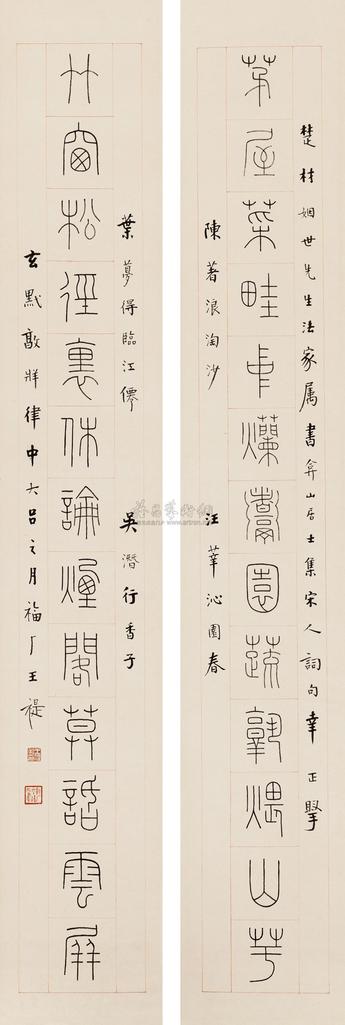 楚材姻世先生法家属書弇山居士集宋人詞句幸正
茅屋菜畦中爛鬻園蔬孰煨山芋
陳著浪淘沙 汪莘沁園春
葉夢得臨江僊 吳潛行香子
竹窗松徑裏休論煙閣莫話雲屏
玄黓敦牂律中大呂之月福厂王禔